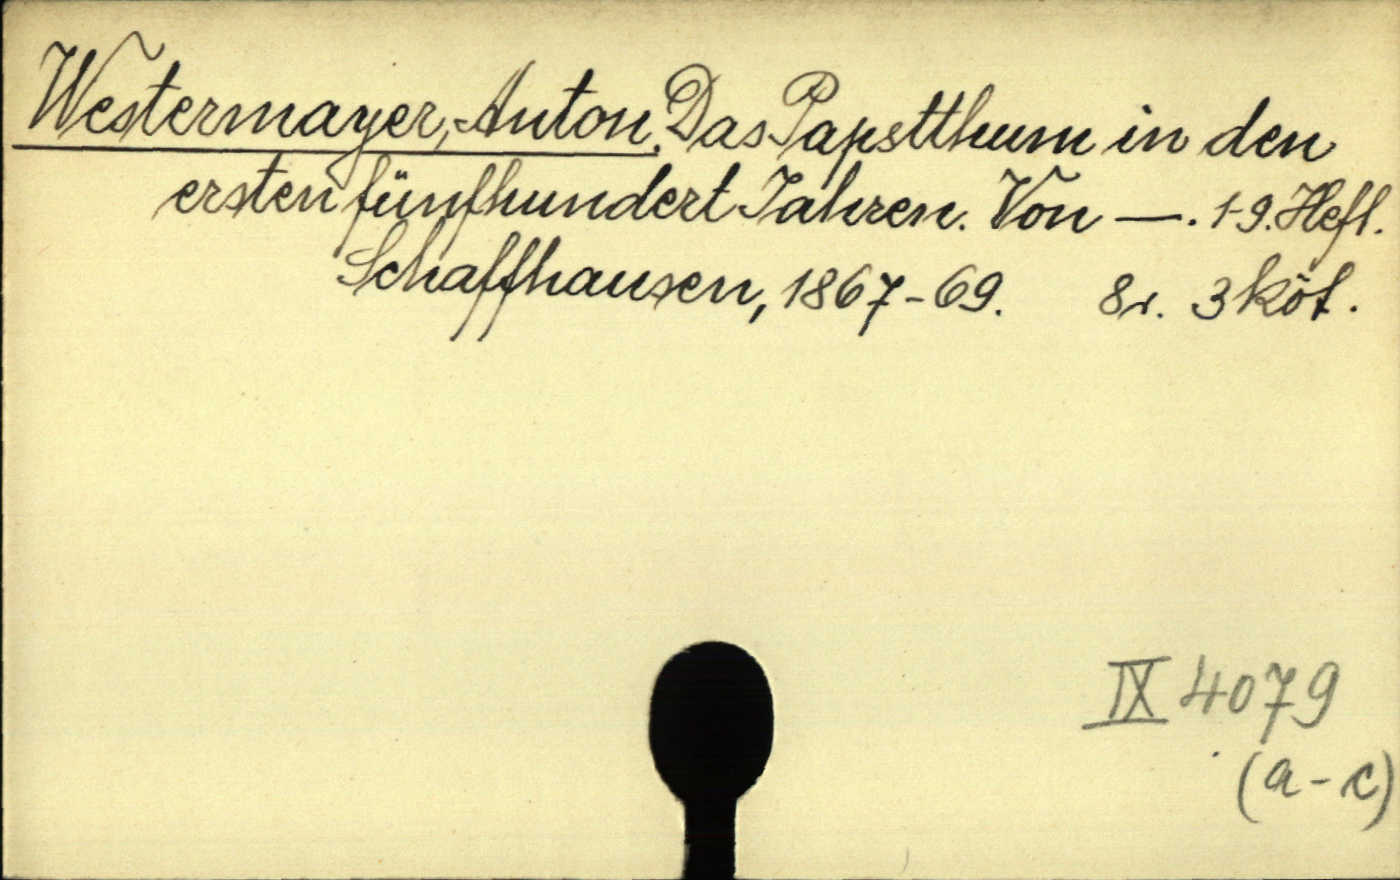 Westermayer, Anton, Das Papstthum in den
ersten fünfhundert Jahren. Von —. 1-9. Heft.
Schaffhausen, 1867-69. 8r. 3 köt.
IX 4079
(a-c)